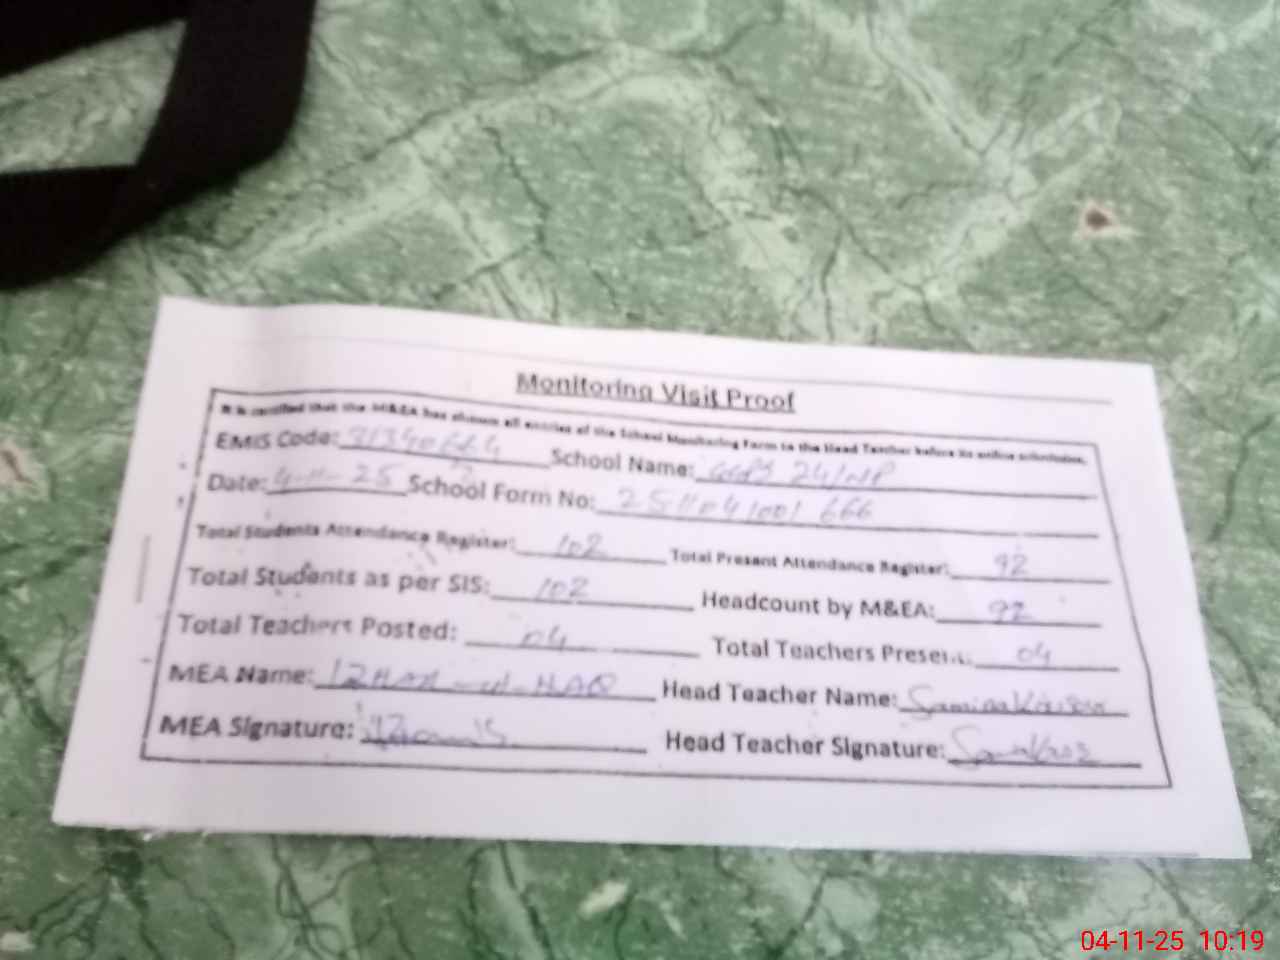 Monitoring Visit Proof
It is certified that the M&EA has shown all entries of the School Monitoring Form to the Head Teacher before its online submission.
EMIS Code: 31340664 School Name: GGPS 24/NP
Date: 4-11-25 School Form No: 2511041001666
Total Students Attendance Register: 102 Total Present Attendance Register: 92
Total Students as per SIS: 102 Headcount by M&EA: 92
Total Teachers Posted: 04 Total Teachers Present: 04
MEA Name: IZHAR-ul-HAQ Head Teacher Name: Samina
MEA Signature: Head Teacher Signature:
04-11-25 10:19